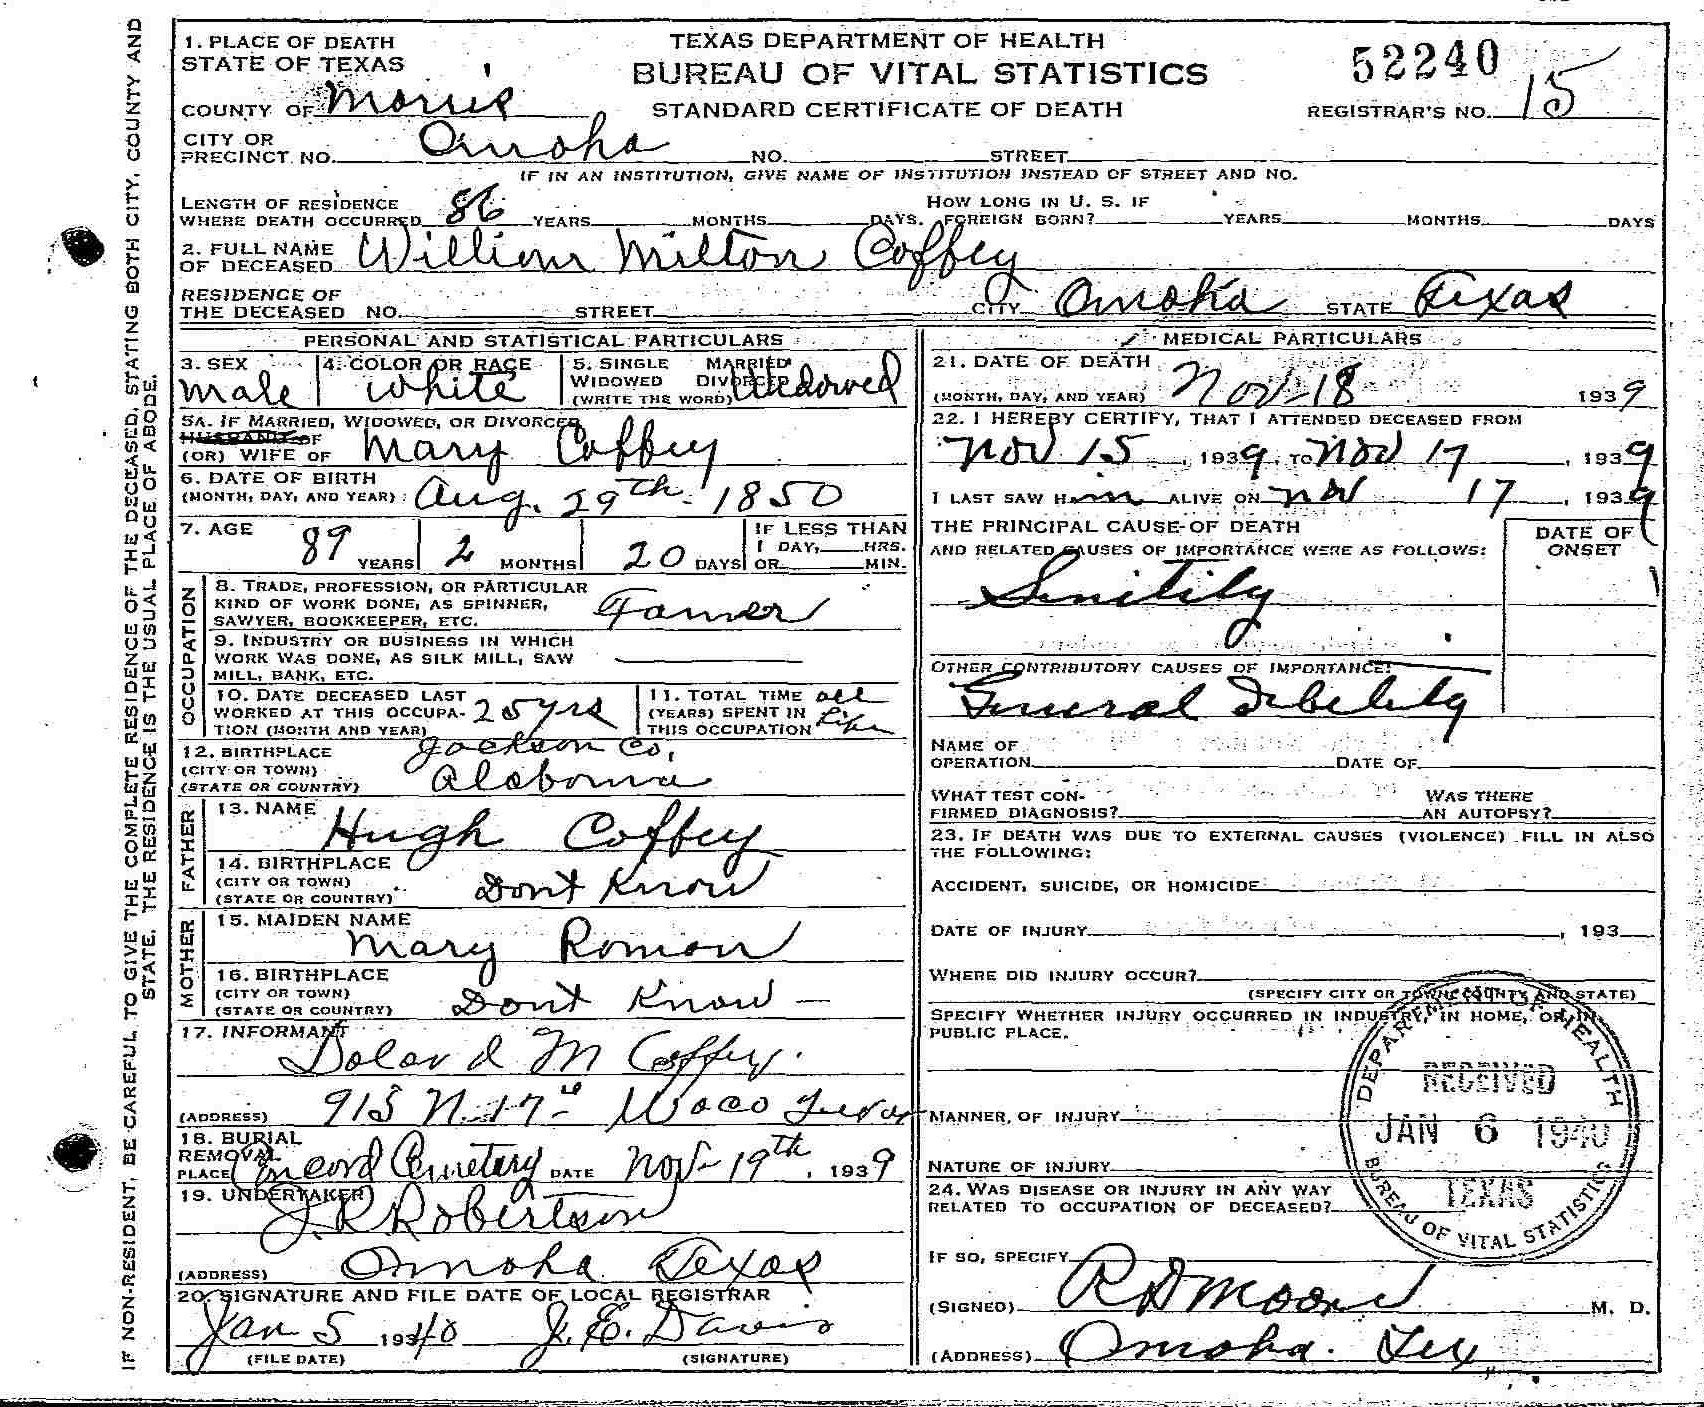 1. PLACE OF DEATH
STATE OF TEXAS
COUNTY OF Morris
TEXAS DEPARTMENT OF HEALTH
BUREAU OF VITAL STATISTICS
STANDARD CERTIFICATE OF DEATH
52240
REGISTRAR'S NO. 15
CITY OR
PRECINCT NO. Omaha NO. STREET
IF IN AN INSTITUTION, GIVE NAME OF INSTITUTION INSTEAD OF STREET AND NO.
LENGTH OF RESIDENCE
WHERE DEATH OCCURRED 86 YEARS MONTHS DAYS.
HOW LONG IN U. S. IF
FOREIGN BORN? YEARS MONTHS DAYS
2. FULL NAME
OF DECEASED William Milton Coffey
RESIDENCE OF
THE DECEASED NO. STREET CITY Omaha STATE Texas
PERSONAL AND STATISTICAL PARTICULARS
3. SEX
male
4. COLOR OR RACE
white
5. SINGLE MARRIED
WIDOWED DIVORCED
(WRITE THE WORD) Widowed
5A. IF MARRIED, WIDOWED, OR DIVORCED
HUSBAND OF
(OR) WIFE OF Mary Coffey
6. DATE OF BIRTH
(MONTH, DAY, AND YEAR) Aug. 29th - 1850
7. AGE
89 YEARS 2 MONTHS 20 DAYS
IF LESS THAN
1 DAY, HRS.
OR MIN.
OCCUPATION
8. TRADE, PROFESSION, OR PARTICULAR
KIND OF WORK DONE, AS SPINNER,
SAWYER, BOOKKEEPER, ETC. Farmer
9. INDUSTRY OR BUSINESS IN WHICH
WORK WAS DONE, AS SILK MILL, SAW
MILL, BANK, ETC.
10. DATE DECEASED LAST
WORKED AT THIS OCCUPA-
TION (MONTH AND YEAR) 25 yrs
11. TOTAL TIME
(YEARS) SPENT IN
THIS OCCUPATION all life
12. BIRTHPLACE
(CITY OR TOWN) Jackson Co,
(STATE OR COUNTRY) Alabama
FATHER
13. NAME
Hugh Coffey
14. BIRTHPLACE
(CITY OR TOWN)
(STATE OR COUNTRY) Dont Know
MOTHER
15. MAIDEN NAME
Mary Roman
16. BIRTHPLACE
(CITY OR TOWN)
(STATE OR COUNTRY) Dont Know —
17. INFORMANT
M Coffey.
(ADDRESS) 915 N. 17th Waco Texas
18. BURIAL
REMOVAL
PLACE Concord Cemetery DATE Nov - 19th, 1939
19. UNDERTAKER
J. R Robertson
(ADDRESS) Omaha Texas
20. SIGNATURE AND FILE DATE OF LOCAL REGISTRAR
Jan 5 19340 J. E. Davis
(FILE DATE) (SIGNATURE)
MEDICAL PARTICULARS
21. DATE OF DEATH
(MONTH, DAY, AND YEAR) Nov - 18 1939
22. I HEREBY CERTIFY, THAT I ATTENDED DECEASED FROM
Nov 15, 1939, TO Nov 17, 1939
I LAST SAW Him ALIVE ON Nov 17, 1939
THE PRINCIPAL CAUSE OF DEATH
AND RELATED CAUSES OF IMPORTANCE WERE AS FOLLOWS:
DATE OF
ONSET
OTHER CONTRIBUTORY CAUSES OF IMPORTANCE:
General Debility
NAME OF
OPERATION DATE OF
WHAT TEST CON-
FIRMED DIAGNOSIS?
WAS THERE
AN AUTOPSY?
23. IF DEATH WAS DUE TO EXTERNAL CAUSES (VIOLENCE) FILL IN ALSO
THE FOLLOWING:
ACCIDENT, SUICIDE, OR HOMICIDE
DATE OF INJURY , 193
WHERE DID INJURY OCCUR?
(SPECIFY CITY OR TOWN, COUNTY AND STATE)
SPECIFY WHETHER INJURY OCCURRED IN INDUSTRY, IN HOME, OR IN
PUBLIC PLACE.
MANNER OF INJURY
NATURE OF INJURY
24. WAS DISEASE OR INJURY IN ANY WAY
RELATED TO OCCUPATION OF DECEASED?
IF SO, SPECIFY
(SIGNED) R D Moore M. D.
(ADDRESS) Omaha. Tex
DEPARTMENT OF HEALTH
RECEIVED
JAN 6 1940
TEXAS
BUREAU OF VITAL STATISTICS
IF NON-RESIDENT, BE CAREFUL TO GIVE THE COMPLETE RESIDENCE OF THE DECEASED, STATING BOTH CITY, COUNTY AND
STATE. THE RESIDENCE IS THE USUAL PLACE OF ABODE.